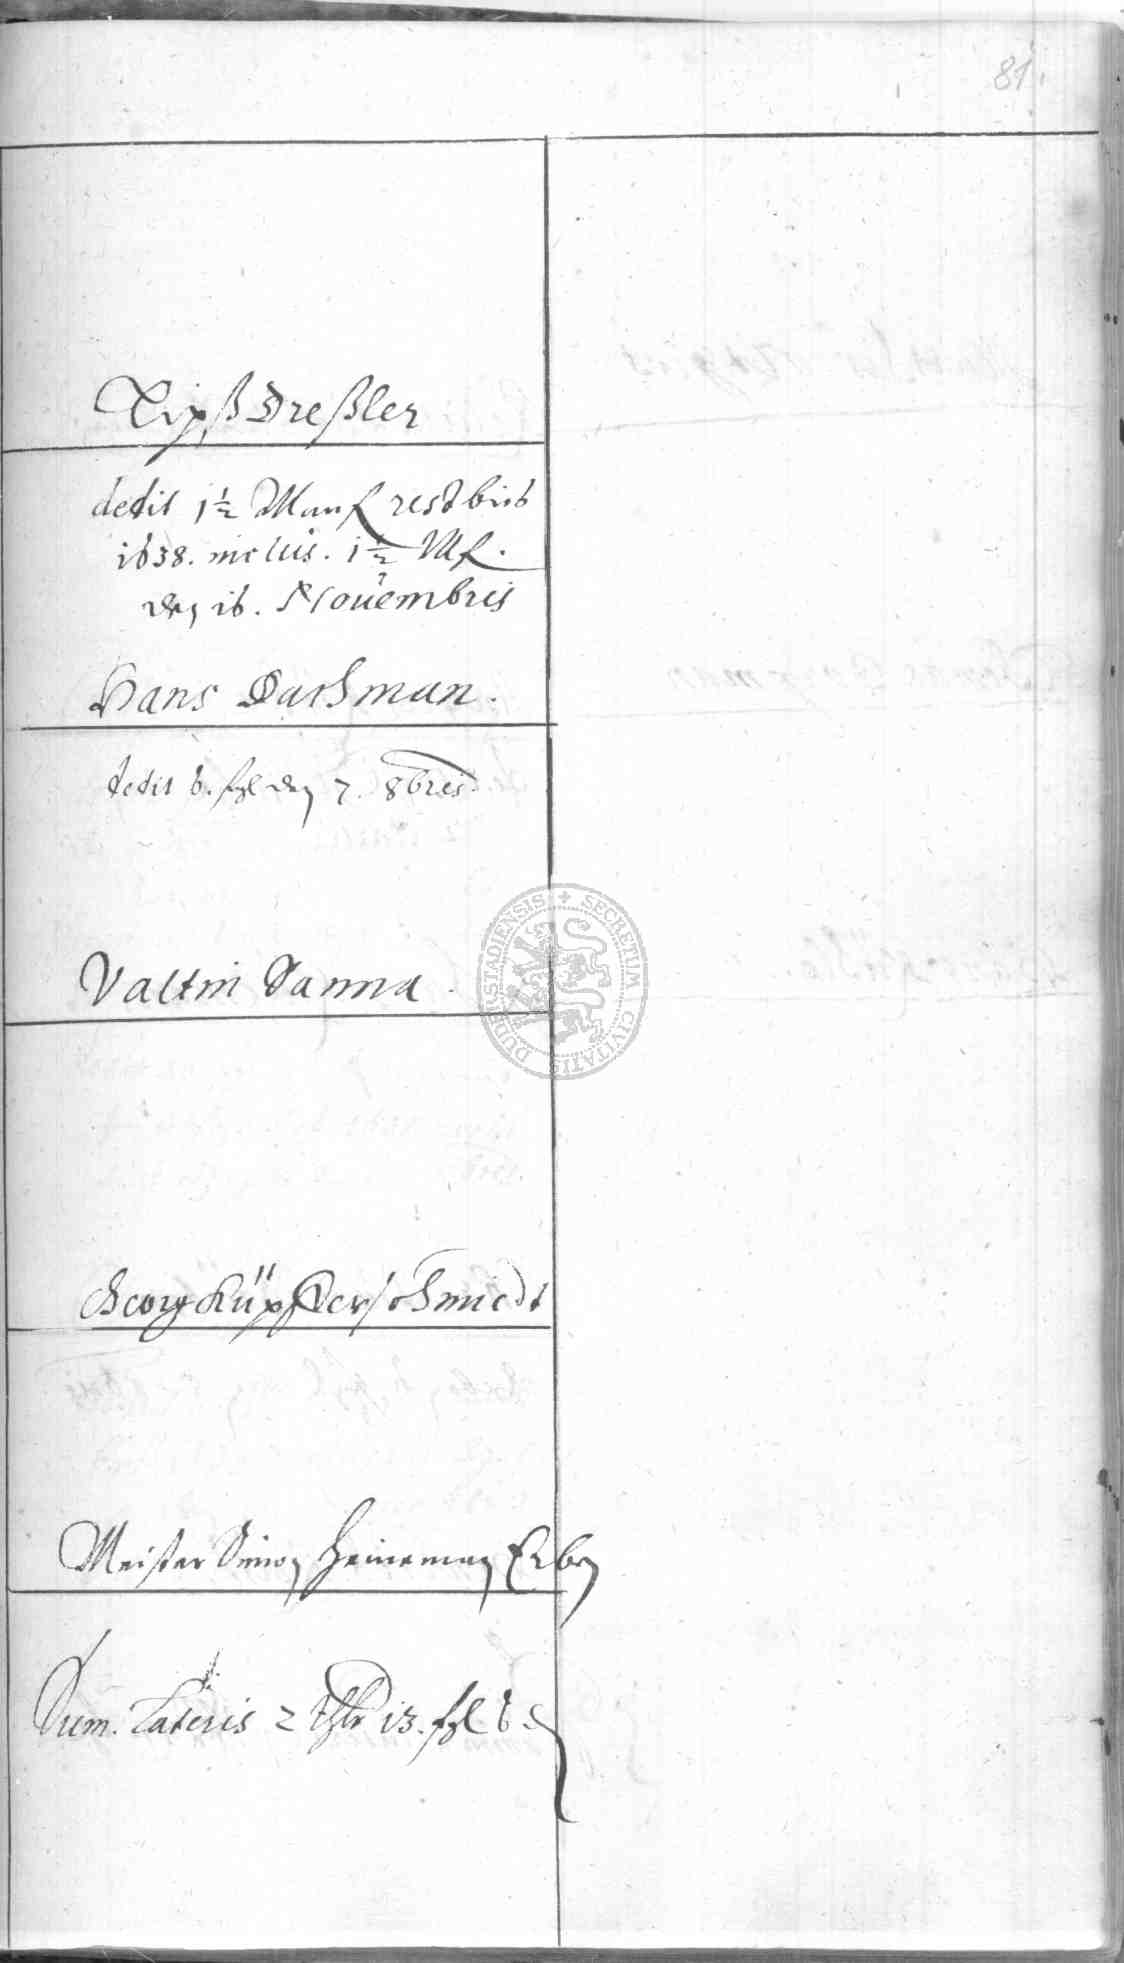 81.
Lipß Dreßler
dedit 1½ Mark rest bis
1638. inclus. 1½ Mk.
den 16. Novembris
Hans Bachman.
dedit 6. ßgl den 7. 8bris.
Valtin Sanna
Georg Küpfferschmiedt
Meister Simon Heineman Erben
Sum. Lateris 2 thlr 13. ßgl 6 ₰
SECRETUM CIVITATIS DUDERSTADIENSIS